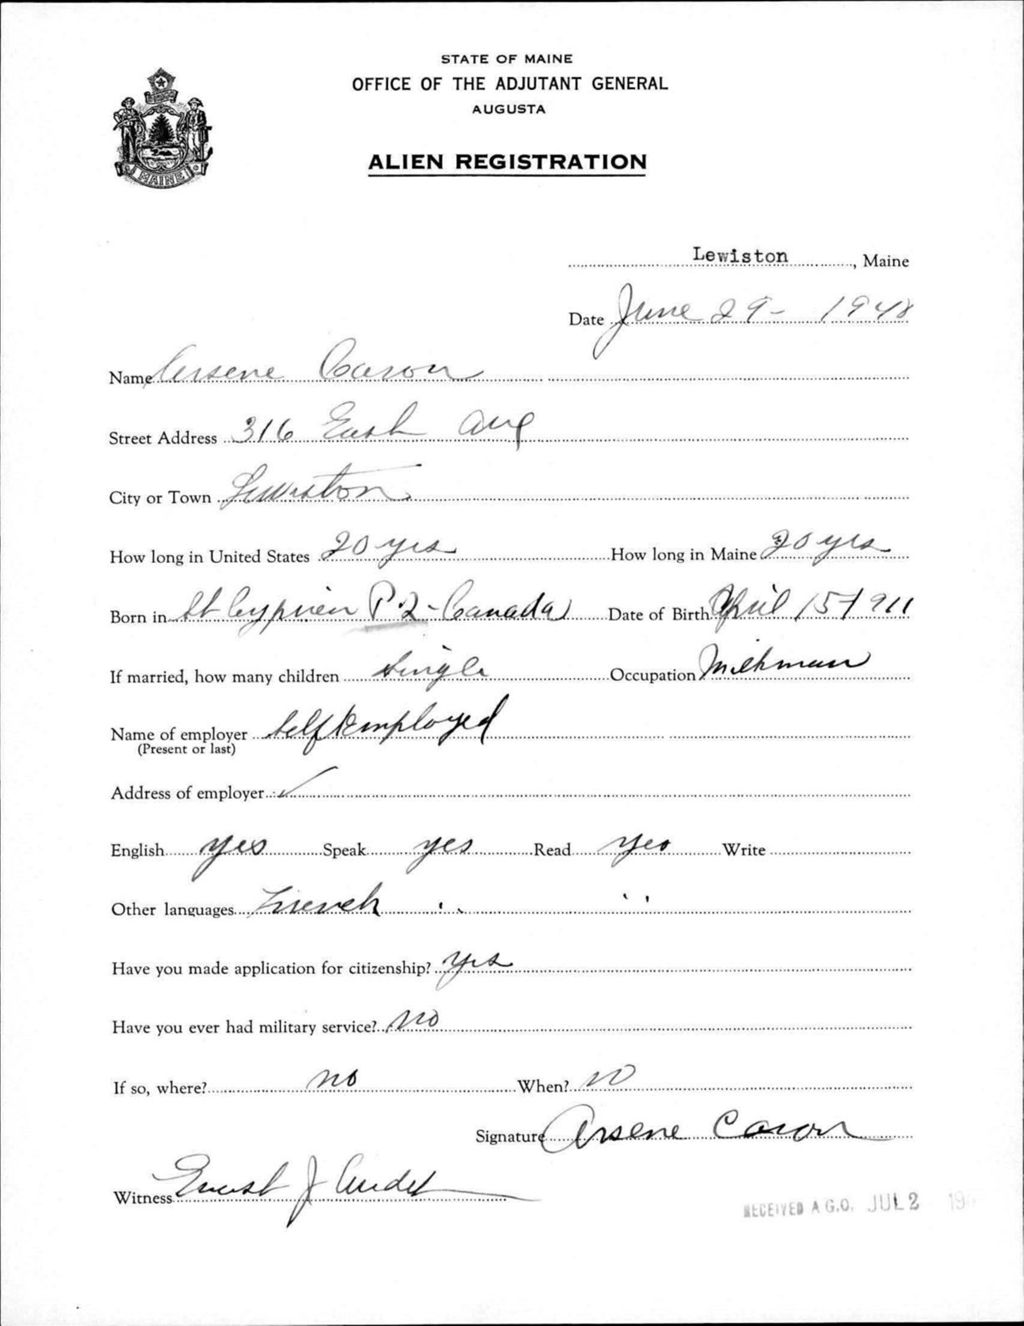 STATE OF MAINE
OFFICE OF THE ADJUTANT GENERAL
AUGUSTA
ALIEN REGISTRATION
MAINE
Lewiston, Maine
Date June 29 - 1948
Name Arsene Caron
Street Address 316 East Ave
City or Town Lewiston
How long in United States 20 yrs How long in Maine 20 yrs
Born in St Cyprien P.Q - Canada Date of Birth April 15 1911
If married, how many children Single Occupation Milkman
Name of employer Self Employed
(Present or last)
Address of employer ✓
English yes Speak yes Read yes Write
Other languages French " "
Have you made application for citizenship? Yes
Have you ever had military service? No
If so, where? no When? no
Signature Arsene Caron
Witness Ernest J Audet
RECEIVED A.G.O. JUL 2